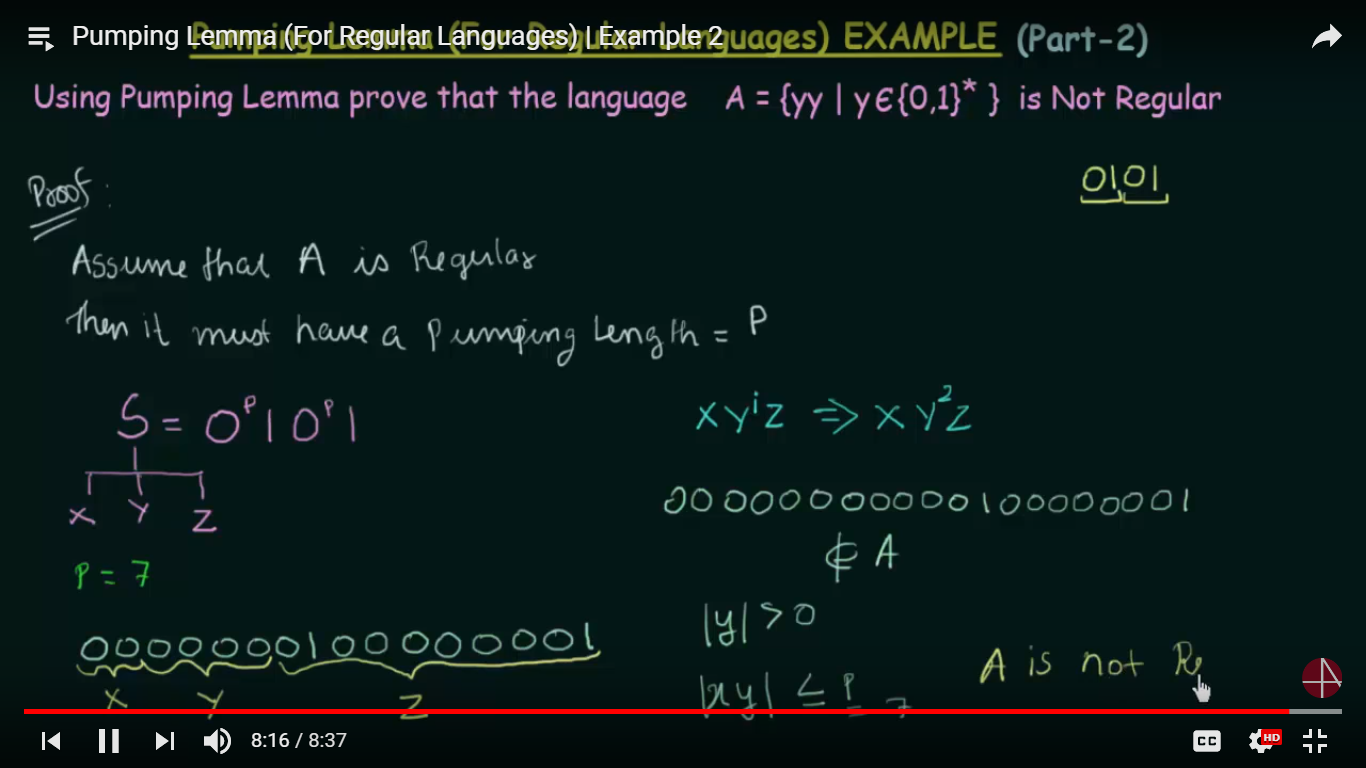 Pumping Lemma (For Regular Languages) | Example 2
Pumping Lemma (For Regular Languages) EXAMPLE (Part-2)
Using Pumping Lemma prove that the language A = {yy | y ∈ {0,1}* } is Not Regular
0101
Proof:
Assume that A is Regular
Then it must have a Pumping Length = P
S = 0ᴾ1 0ᴾ1
X Y Z
XYⁱZ ⇒ XY²Z
P = 7
0000000100000001
X Y Z
00000000000100000001
∉ A
|y| > 0
|xy| ≤ P
= 7
A is not Re
8:16 / 8:37
CC
HD